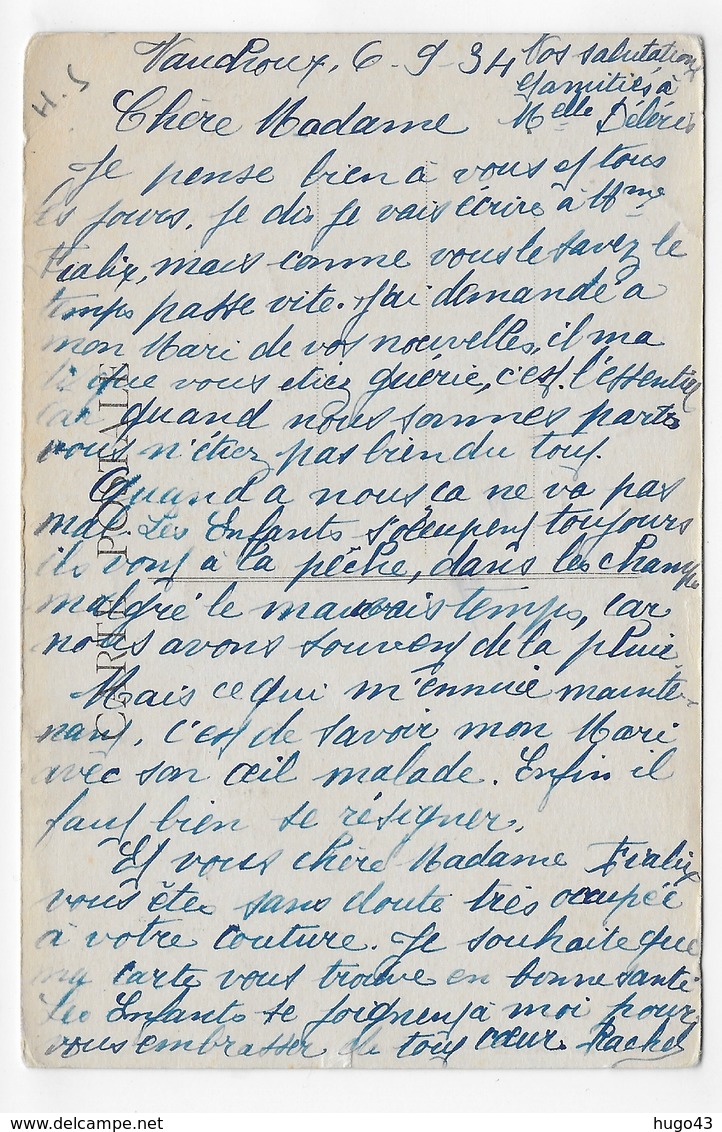 H. S
Vaudroux, 6-9-34
Nos salutations
et amitiés à
Melle Déléris
Chère Madame
Je pense bien à vous et tous
les jours, je dis je vais écrire à Mme
Fialix, mais comme vous le savez le
temps passe vite. J'ai demandé à
mon Mari de vos nouvelles, il ma
dit que vous etiez guérie, c'est l'essentiel
car quand nous sommes partis
vous n'étiez pas bien du tout.
Quand a nous ça ne va pas
mal. Les Enfants s'occupent toujours
ils vont à la pêche, dans les champs
malgré le mauvais temps, car
nous avons souvent de la pluie.
Mais ce qui m'ennuie mainte-
nant, c'est de savoir mon Mari
avec son œil malade. Enfin il
faut bien se résigner.
Et vous chère Madame Fialix
vous êtes sans doute très occupée
à votre couture. Je souhaite que
ma carte vous trouve en bonne santé
Les Enfants se joignent à moi pour
vous embrasser de tout cœur. Rachel
CARTE POSTALE
http://www.delcampe.net
hugo43